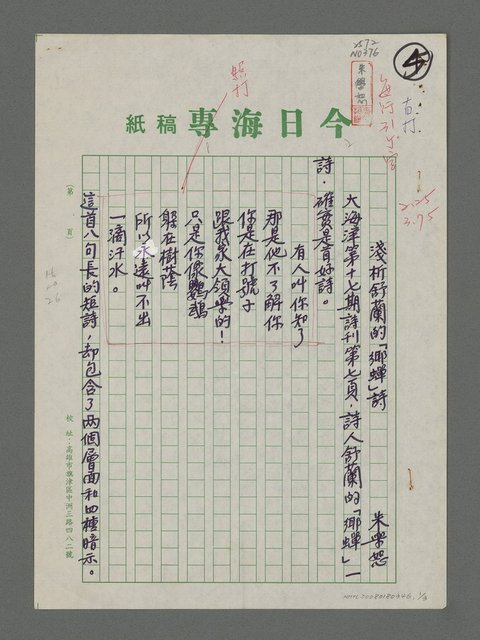 今日海專稿紙
淺析舒蘭的「鄉蟬」詩
朱學恕
大海洋第十七期詩刊第七頁，詩人舒蘭的「鄉蟬」一
詩，確實是首好詩。
有人叫你知了
那是他不了解你
你是在打號子
跟我家大領學的！
只是你像鸚鵡
躲在樹蔭
所以永遠叫不出
一滴汗水。
這首八句長的短詩，却包含了兩個層面和四種暗示。
（第　頁）
校址：高雄市旗津區中洲三路四八二號
照打
直打
朱學恕
2572
NO376
2.25
3.75